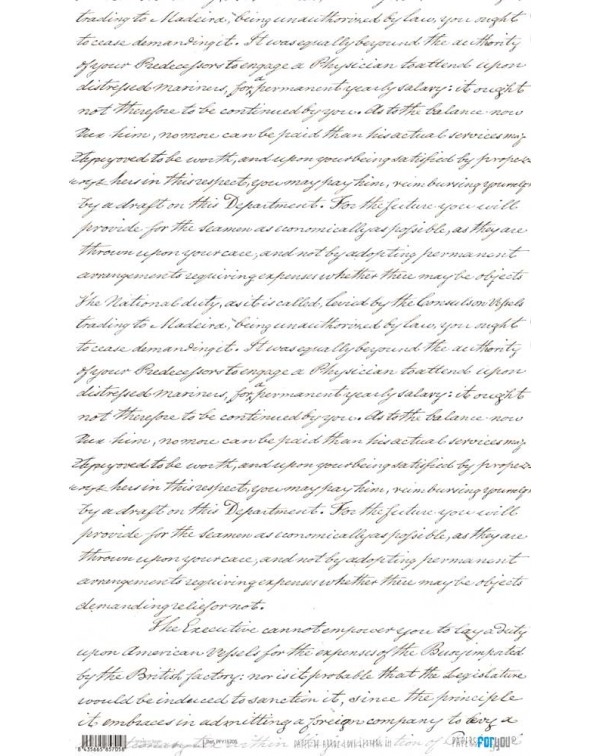 trading to Madeira, "being unauthorized by law, you ought
to cease demanding it. It was equally beyond the authority
of your Predecessors to engage a Physician to attend upon
distressed Mariners, for a permanent yearly salary: it ought
not therefore to be continued by you. As to the balance now
due him, no more can be paid than his actual services may
be proved to be worth, and upon your being satisfied by proper
hers in this respect, you may pay him, reimbursing yourself
by a draft on this Department. For the future you will
provide for the seamen as economically as possible, as they are
thrown upon your care, and not by adopting permanent
arrangements requiring expenses whether there may be objects
The National duty, as it is called, levied by the Consuls on Vessels
trading to Madeira, "being unauthorized by law, you ought
to cease demanding it. It was equally beyond the authority
of your Predecessors to engage a Physician to attend upon
distressed Mariners, for a permanent yearly salary: it ought
not therefore to be continued by you. As to the balance now
due him, no more can be paid than his actual services may
be proved to be worth, and upon your being satisfied by proper
hers in this respect, you may pay him, reimbursing yourself
by a draft on this Department. For the future you will
provide for the seamen as economically as possible, as they are
thrown upon your care, and not by adopting permanent
arrangements requiring expenses whether there may be objects
demanding relief or not.
The Executive cannot empower you to lay a duty
upon American Vessels for the expenses of the imported
by the British factory: nor is it probable that the Legislature
would be induced to sanction it, since the principle
it embraces in admitting a foreign company to levy a
within
8 435665 857058
PAPERS FOR YOU